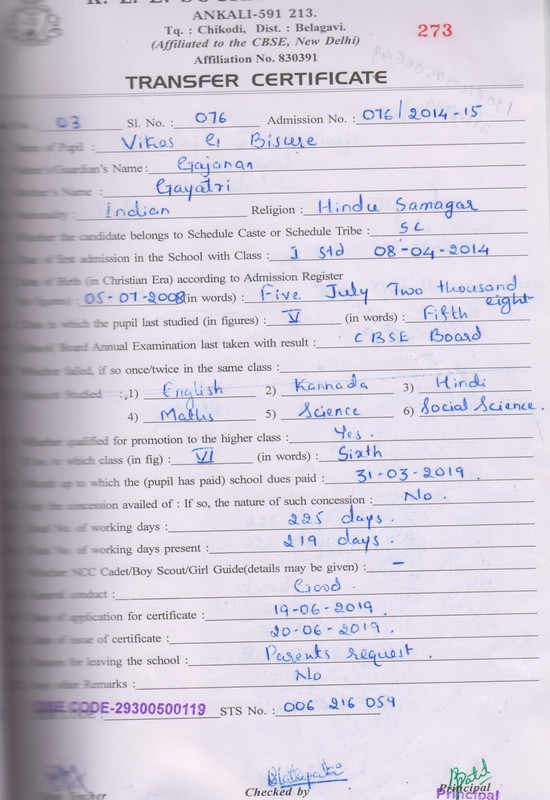 ANKALI-591 213.
Tq. : Chikodi, Dist. : Belagavi.
(Affiliated to the CBSE, New Delhi)
273
Affiliation No. 830391
TRANSFER CERTIFICATE
03 Sl. No. : 076 Admission No. : 076/2014-15
of Pupil : Vikas G Bisure
Guardian's Name : Gajanan
Name : Gayatri
Indian Religion : Hindu Samagar
the candidate belongs to Schedule Caste or Schedule Tribe : SC
of first admission in the School with Class : I Std 08-04-2014
of Birth (in Christian Era) according to Admission Register
05-07-2008 (in words) : Five July Two thousand eight
in which the pupil last studied (in figures) : V (in words) : Fifth
Board Annual Examination last taken with result : CBSE Board
failed, if so once/twice in the same class :
Studied :,1) English 2) Kannada 3) Hindi
4) Maths 5) Science 6) Social Science.
qualified for promotion to the higher class : Yes.
which class (in fig) : VI (in words) : Sixth
up to which the (pupil has paid) school dues paid : 31-03-2019.
concession availed of : If so, the nature of such concession : No.
No. of working days : 225 days.
No. of working days present : 219 days.
NCC Cadet/Boy Scout/Girl Guide(details may be given) : –
conduct : Good.
of application for certificate : 19-06-2019.
of issue of certificate : 20-06-2019.
for leaving the school : Parents request.
Remarks : No
CODE-29300500119 STS No. : 006 216 059
Teacher Checked by Principal
Principal